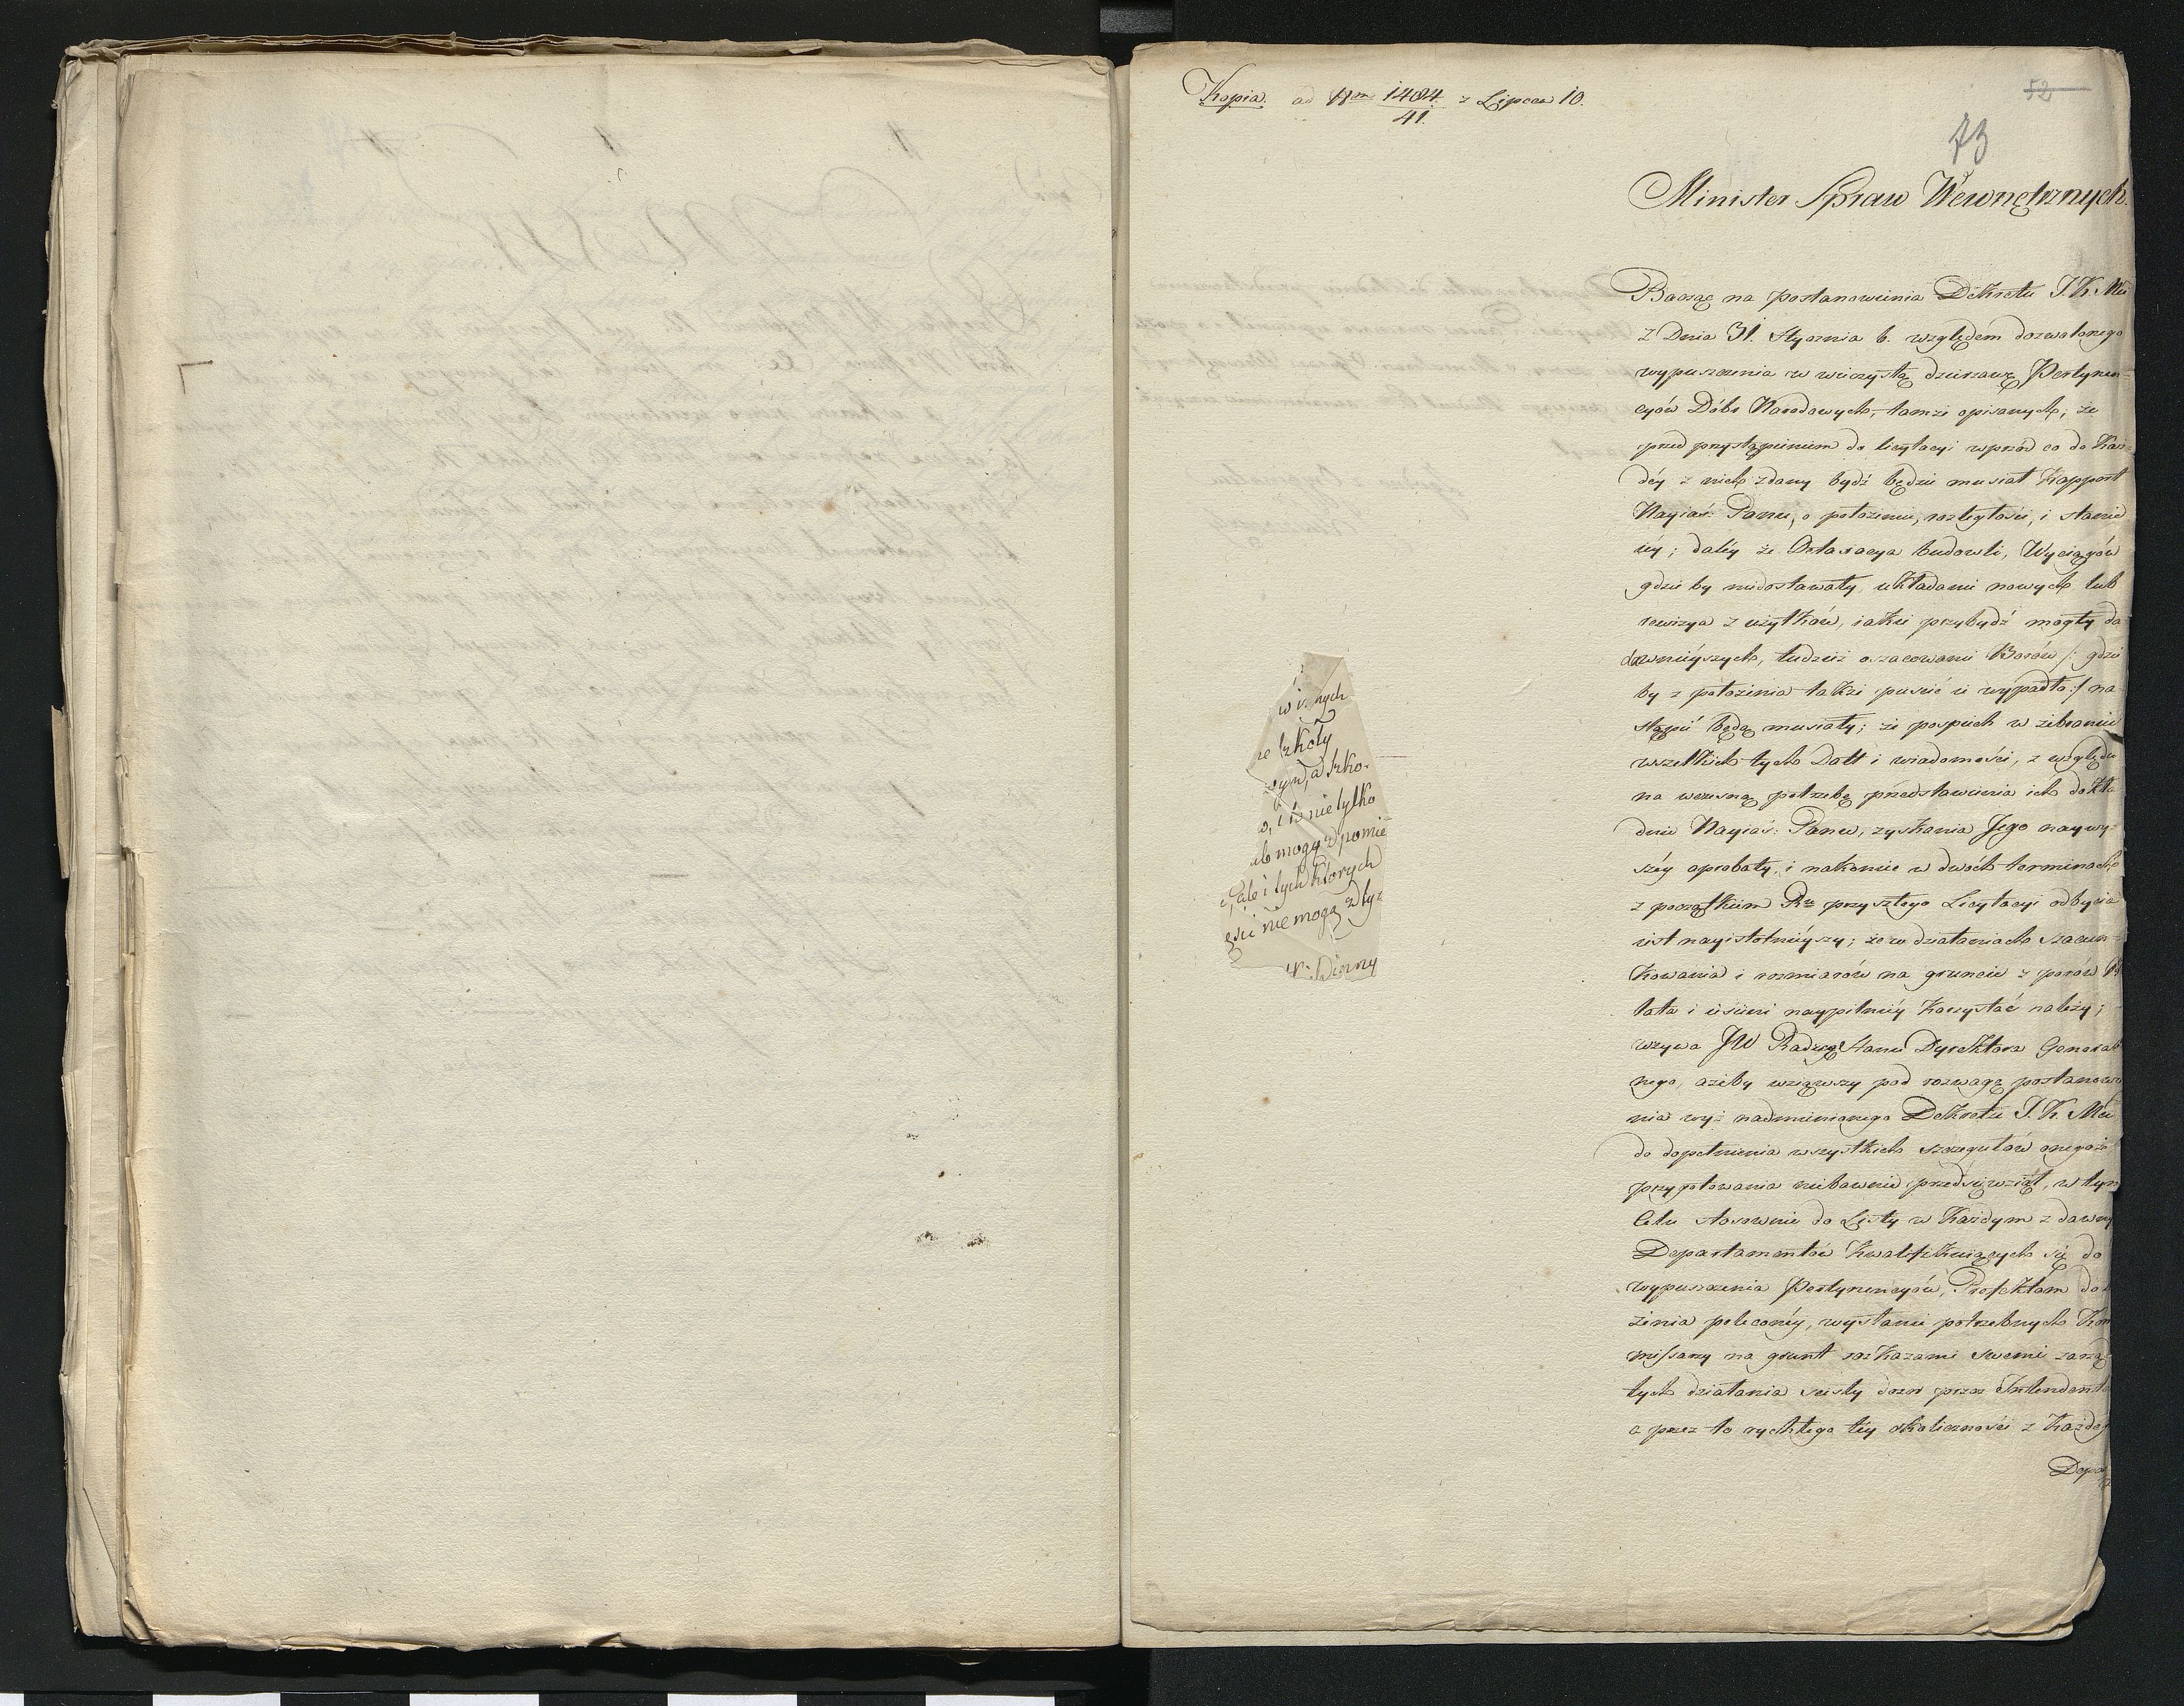 Kopia. ad Nrm 1484/41. z Lipca 10.
52
73
Minister Spraw Wewnętrznych.
Bacząc na postanowienia Dekretu J. K. Mci
z Dnia 31. Stycznia b. względem dozwolonego
wypuszczenia w wieczystą dzierzawę Pertynen-
cyów Dóbr Narodowych, tamże opisanych, że
przed przystąpieniem do licytacyi wprzód co do Kaz-
déy z nich zdany bydź będzie musiał Rapport
Nayiaś: Panu, o położeniu, rozległości, i stanie
iéy; daléy że Detaxacya budowli, Wyciągów
gdzie by niedostawały, układanie nowych lub
rewizya z użytków, iakie przybydź mogły do
dawniéyszych, tudzież oszacowanie Borów /: gdzie
by z położenia także puścić ie wypadło :/ na-
stąpić będą musiały; że pospiech w zebraniu
wszelkich tych Datt i wiadomości, z względu
na wczesną potrzebę przedstawienia ich dokła
dnie Nayiaś: Panu, zyskania Jego naywy-
széy aprobaty, i nakoniec w dwóch terminach
z początkiem Rku przyszłego Licytacyi odbycia
iest nayistotniéyszy; że w działaniach szacun-
kowania i rozmiarów na gruncie z porów
lata i iesieni naypilniéy korzystać należy;
wzywa JW Radzcę Stanu Dyrektora General
nego, ażeby wziąwszy pod rozwagę postanowie
nia wyż nadmienionego Dekretu J. K. Mci
do dopełnienia wszystkich szczegułów onegoż
przygotowania niebawnie przedsięwziął, w tym
Celu stosownie do Listy w każdym z dawny
Departamentów kwalifikuiących się do
wypuszczenia Pertynencyów, Prefektom do
żenia poleconéy, wysłanie potrzebnych Kom
missarzy na grunt rozkazami swemi zarzą
tych działania ścisły dozór przez Intendent
a przez to rychłego téy okoliczności z każdego
Depar
w innych
re szkoły
zyn, a szko-
w, i is nie tylko
ub mogą wspomie
, ale i tych których
ęści nie mogą z tyc
winny